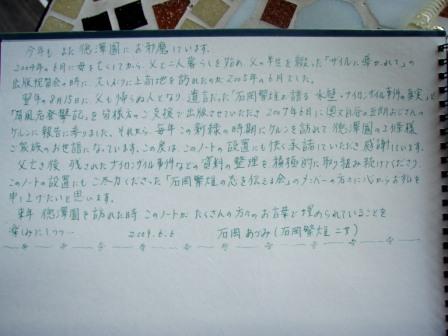 今年も また 徳澤園にお邪魔しています。
2004年6月に母を亡くしてから、父と二人暮らしを始め、父の半生を綴った「ザイルに導かれて」の
出版祝賀会の時に、久しぶりに上高地を訪れたのが2005年6月でした。
翌年の8月15日に父も帰らぬ人となり、遺言だった「石岡繁雄が語る 氷壁・ナイロンザイル事件の真実」と
「屏風岩登攀記」を皆様方のご支援で出版させていただき 2007年6月に 五朗おじさんの
ケルンに報告に参りました。それから、毎年この新緑の時期にケルンを訪れて徳澤園の上條様
ご家族のお世話になっています。この度は、このノートの設置にも快く承諾していただき感謝しています。
父亡き後 残されたナイロンザイル事件などの資料の整理を積極的に取り組み続けてくださり、
このノートの設置にもご尽力くださった「石岡繁雄の志を伝える会」のメンバーの方々に心からお礼を
申し上げたいと思います。
来年 徳澤園を訪れた時 このノートが たくさんの方々のお言葉で埋められていることを
楽しみにしつつ… 2009.6.6 石岡 あづみ(石岡繁雄 二女)